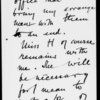 office that
bring my arrange
ments with them
to an end.
Miss H of course
remains with
me. She will
be necessary
for I mean to